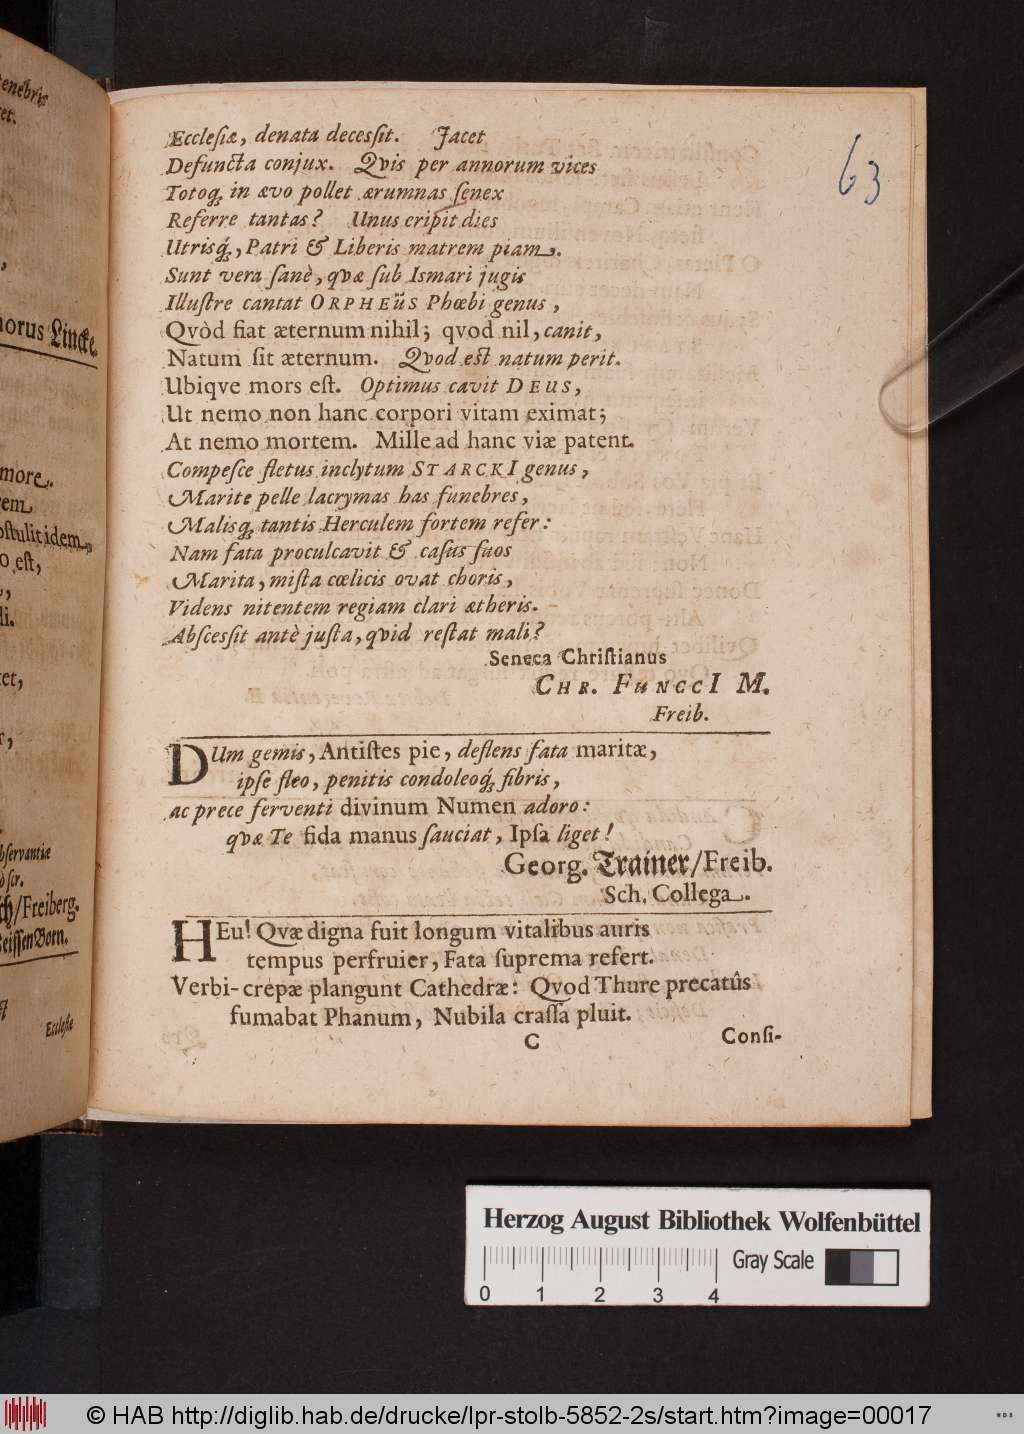 tenebris
et.
norus Lincke.
more.
rem
ostulit idem,
o est,
li.
tet,
r,
bservantiæ
scr.
ch/Freiberg.
eissenBorn.
Ecclesiæ
63
Ecclesiæ, denata decessit. Jacet
Defuncta conjux. Qvis per annorum vices
Totoq; in ævo pollet ærumnas senex
Referre tantas? Unus eripit dies
Utrisq́;, Patri & Liberis matrem piam.
Sunt vera sanè, qvæ sub Ismari jugis
Illustre cantat ORPHEüS Phœbi genus,
Qvòd fiat æternum nihil; qvod nil, canit,
Natum sit æternum. Qvod est natum perit.
Ubiqve mors est. Optimus cavit DEUS,
Ut nemo non hanc corpori vitam eximat;
At nemo mortem. Mille ad hanc viæ patent.
Compesce fletus inclytum STARCKI genus,
Marite pelle lacrymas has funebres,
Malisq; tantis Herculem fortem refer:
Nam fata proculcavit & casus suos
Marita, mista cœlicis ovat choris,
Videns nitentem regiam clari ætheris.
Abscessit antè justa, qvid restat mali?
Seneca Christianus
CHR. FUNCCI M.
Freib.
DUm gemis, Antistes pie, deflens fata maritæ,
ipse fleo, penitis condoleoq́; fibris,
ac prece ferventi divinum Numen adoro:
qvæ Te fida manus sauciat, Ipsa liget!
Georg. Trainer/Freib.
Sch. Collega.
HEu! Qvæ digna fuit longum vitalibus auris
tempus perfruier, Fata suprema refert.
Verbi-crepæ plangunt Cathedræ: Qvod Thure precatûs
fumabat Phanum, Nubila crassa pluit.
C
Consi-
Herzog August Bibliothek Wolfenbüttel
Gray Scale
0 1 2 3 4
© HAB http://diglib.hab.de/drucke/lpr-stolb-5852-2s/start.htm?image=00017